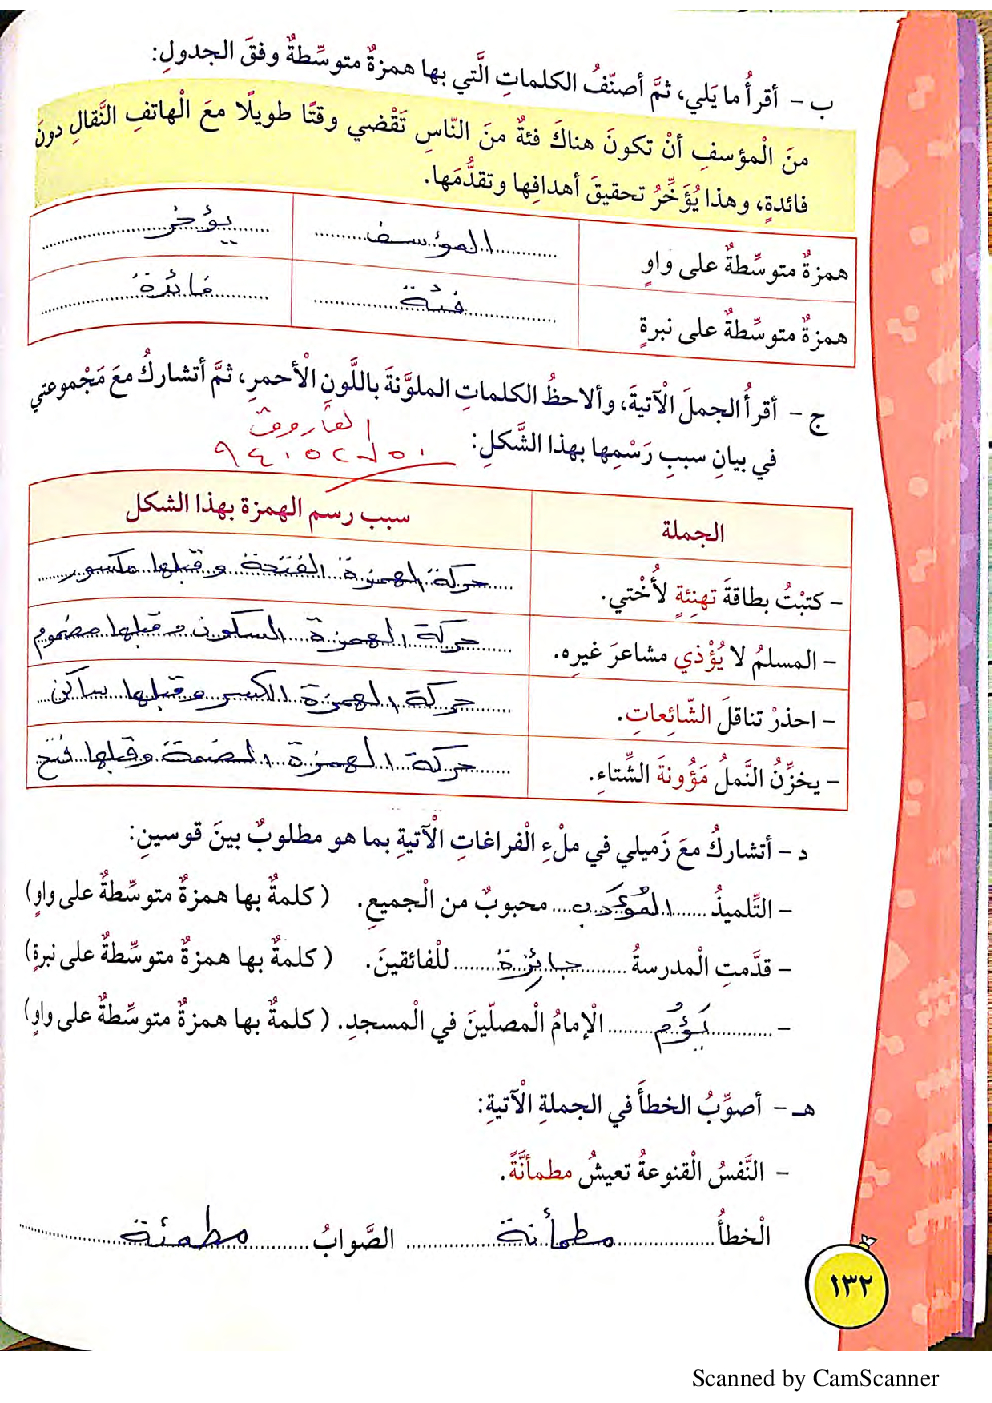 ب - أقرأُ ما يَلي، ثمَّ أصنّفُ الكلماتِ الَّتي بها همزةٌ متوسِّطةٌ وفقَ الجدولِ:
منَ الْمؤسفِ أنْ تكونَ هناكَ فئةٌ منَ النّاسِ تَقْضي وقتًا طويلًا معَ الْهاتفِ النَّقالِ دونَ
فائدةٍ، وهذا يُؤَخِّرُ تحقيقَ أهدافِها وتقدُّمَها.
همزةٌ متوسِّطةٌ على واوٍ المؤسف يؤخر
همزةٌ متوسِّطةٌ على نبرةٍ فئة فائدة
ج - أقرأُ الجملَ الْآتيةَ، وألاحظُ الكلماتِ الملوَّنةَ باللَّونِ الْأحمرِ، ثمَّ أتشاركُ معَ مَجْموعتي
في بيانِ سببِ رَسْمِها بهذا الشَّكلِ:
الفاروق
الجملة سبب رسم الهمزة بهذا الشكل
- كتبْتُ بطاقةَ تهنئةٍ لأُخْتي. حركة الهمزة الفتحة وقبلها مكسور
- المسلمُ لا يُؤْذي مشاعرَ غيرِه. حركة الهمزة السكون وقبلها مضموم
- احذرْ تناقلَ الشّائعاتِ. حركة الهمزة الكسر وقبلها ساكن
- يخزِّنُ النَّملُ مَؤُونةَ الشِّتاءِ. حركة الهمزة الضمة وقبلها فتح
د - أتشاركُ معَ زَميلي في ملْءِ الْفراغاتِ الْآتيةِ بما هو مطلوبٌ بينَ قوسينِ:
- التِّلميذُ المُؤَدب محبوبٌ من الْجميعِ. (كلمةٌ بها همزةٌ متوسِّطةٌ على واوٍ)
- قدَّمتِ الْمدرسةُ جائزة للْفائقينَ. (كلمةٌ بها همزةٌ متوسِّطةٌ على نبرةٍ)
- يَؤُم الْإمامُ الْمصلّينَ في الْمسجدِ. (كلمةٌ بها همزةٌ متوسِّطةٌ على واوٍ)
هـ - أصوِّبُ الخطأَ في الجملةِ الْآتيةِ:
- النَّفسُ الْقنوعةُ تعيشُ مطمأنَّةً.
الْخطأُ مطمأنة الصَّوابُ مطمئة
١٣٢
Scanned by CamScanner